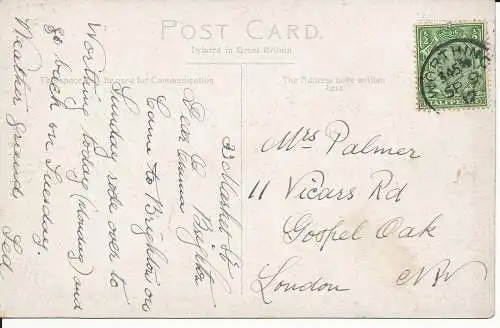 POST CARD.
Printed in Great Britain
The space may be used for Communication
The Address to be written here.
WORTHING
SP 9
12
HALFPENNY
33 Market St
Brighton
Dear Emma
Came to Brighton on
Sunday rode over to
Worthing today (Monday) and
go back on Tuesday.
Weather grand Ted
Mrs Palmer
11 Vicars Rd
Gospel Oak
London N.W